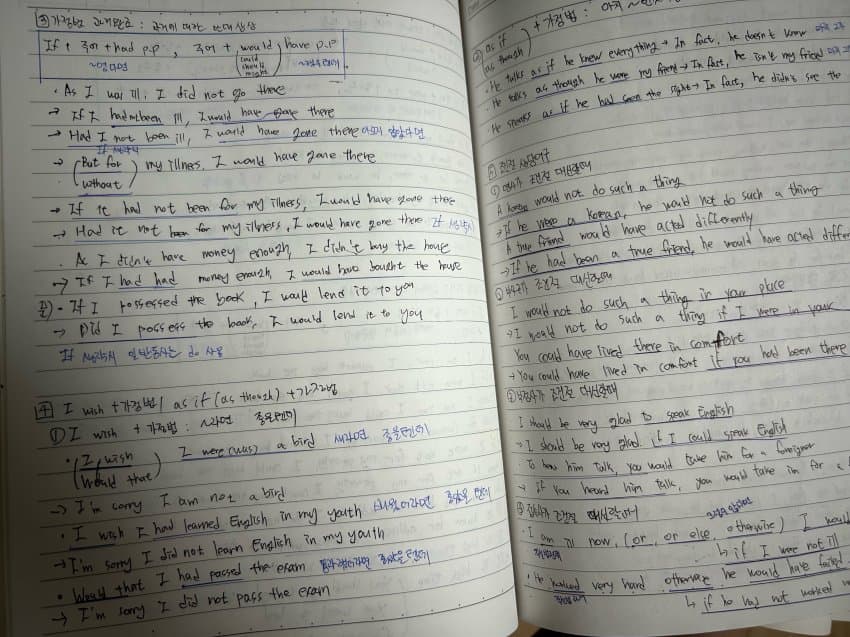 ③ 가정법 과거완료 : 과거에 대한 반대 상상
If + 주어 + had p.p , 주어 + would have p.p
could
should
might
~했다면
· As I was ill, I did not go there
→ If I had not been ill, I would have gone there
→ Had I not been ill, I would have gone there 아프지 않았다면
If 생략시
→ (But for my illness, I would have gone there
without)
→ If it had not been for my illness, I would have gone there
→ Had it not been for my illness, I would have gone there If 생략시
· As I didn't have money enough, I didn't buy the house
→ If I had had money enough, I would have bought the house
· If I possessed the book, I would lend it to you
→ Did I possess the book, I would lend it to you
If 생략시 일반동사는 do 사용
4 I wish + 가정법 / as if (as though) + 가정법
① I wish + 가정법 : ~라면 좋을텐데
· (I wish I were (was) a bird 새라면 좋을텐데
Would that)
→ I'm sorry I am not a bird
· I wish I had learned English in my youth 배웠더라면 좋았을 텐데
→ I'm sorry I did not learn English in my youth
· Would that I had passed the exam 합격했더라면 좋았을텐데
→ I'm sorry I did not pass the exam
② as if + 가정법 : 마치
as though
· He talks as if he knew everything → In fact, he doesn't know
· He talks as though he were my friend → In fact, he isn't my friend
· He speaks as if he had seen the sight → In fact, he didn't see the
조건절 상당어구
① 주어가 조건절 대신할때
A Korean would not do such a thing
→ If he were a Korean, he would not do such a thing
A true friend would have acted differently
→ If he had been a true friend, he would have acted differ
② 부사구가 조건절 대신할때
I would not do such a thing in your place
→ I would not do such a thing if I were in your
You could have lived there in comfort
→ You could have lived in comfort if you had been there
③ 부정사가 조건절 대신할때
I should be very glad to speak English
→ I should be very glad if I could speak English
To hear him talk, you would take him for a foreigner
→ if you heard him talk, you would take him for a
④ 접속사가 조건절 대신할때
· I am ill now, (or, or else, otherwise) I would
↳ if I were not ill
· He worked very hard otherwise he would have failed
↳ if he has not worked